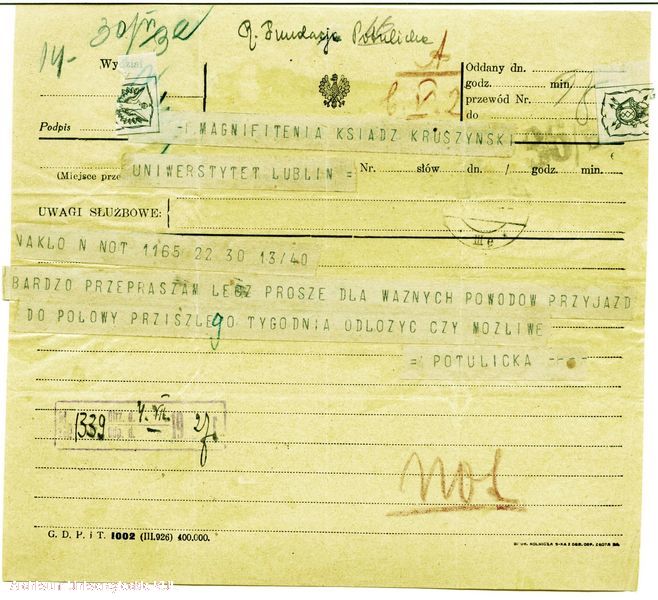 14- 30/
R. Fundacja Potulicka
A
Wydział
Oddany dn.
godz. min.
przewód Nr.
do
Podpis
=I.MAGNIFITENIA KSIADZ KRUSZYNSKI
(Miejsce prze
UNIWERSTYTET LUBLIN =
Nr. słów dn. / godz. min.
UWAGI SŁUŻBOWE:
NAKLO N NOT 1165 22 30 13/40
BARDZO PRZEPRASZAN LECZ PROSZE DLA WAZNYCH POWODOW PRZYJAZD
DO POLOWY PRZISZLEGO TYGODNIA ODLOZYC CZY MOZLIWE
= POTULICKA
1339 4. VII. 19 27 r.
not
G. D. P. i T. 1002 (III.926) 400.000.